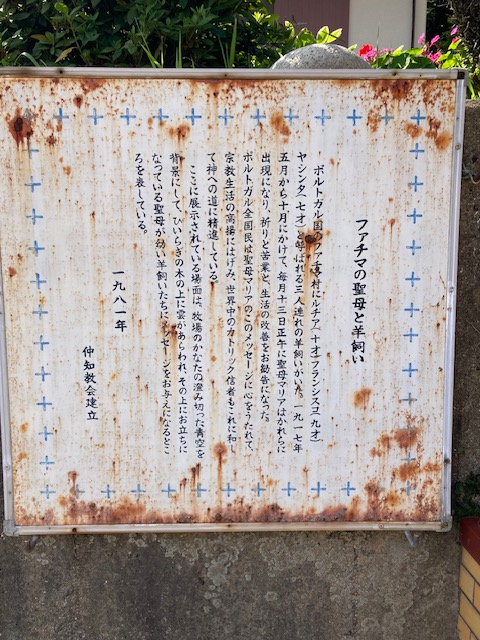 ファチマの聖母と羊飼い
ポルトガル国のファチマ村にルチア(十才)フランシスコ(九才)
ヤシンタ(七才)と呼ばれる三人連れの羊飼いがいた。一九一七年
五月から十月にかけて、毎月十三日正午に聖母マリアはかれらに
出現になり、祈りと苦業と、生活の改善をお勧告になった。
ポルトガル全国民は聖母マリアのこのメッセージに心をうたれて、
宗教生活の高揚にはげみ、世界中のカトリック信者もこれに和し
て神への道に精進している。
ここに展示されている場面は、牧場のかなたの澄み切った青空を
背景にして、ひいらぎの木の上に雲があらわれ、その上にお立ちに
なっている聖母が幼い羊飼いたちにメッセージをお与えになるとこ
ろを表している。
一九八一年
仲知教会建立